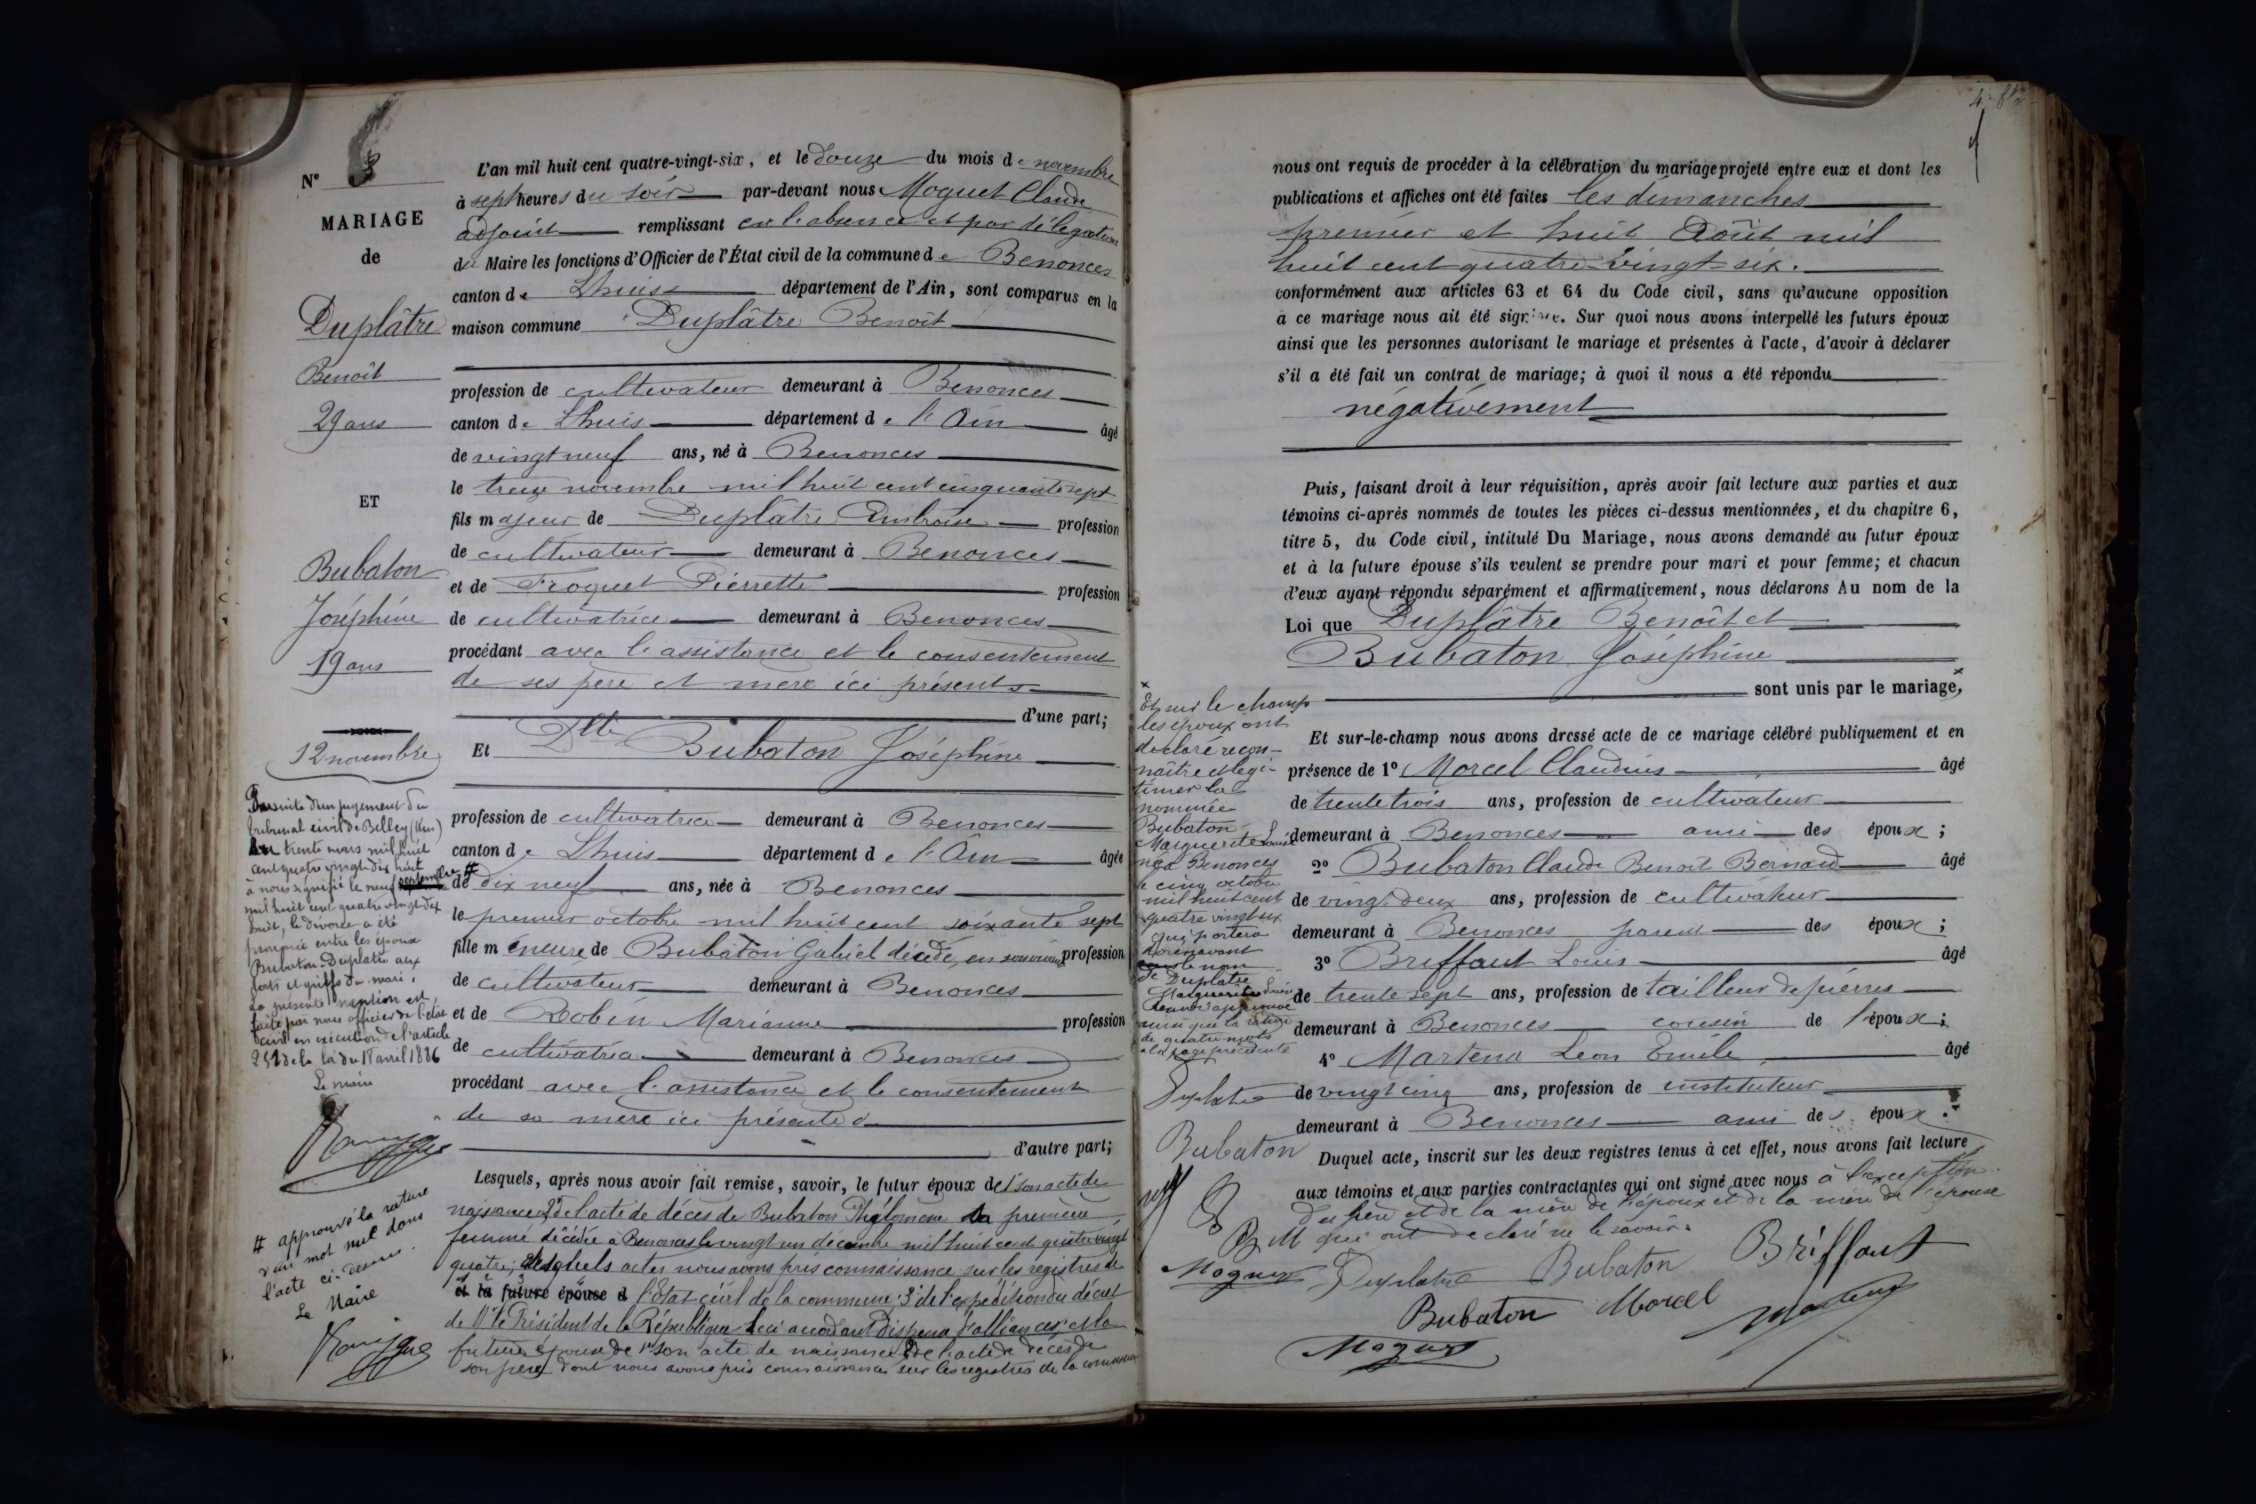 N° 3
MARIAGE
de
Duplâtre
Benoît
29 ans
ET
Bubaton
Joséphine
19 ans
12 novembre
Par suite d'un jugement du
tribunal civil de Belley (Ain)
du trente mars mil huit
cent quatre vingt dix huit
à nous signifié le neuf septembre #
mil huit cent quatre vingt dix
huit, le divorce a été
prononcé entre les époux
Bubaton-Duplatre aux
torts et griefs du mari.
La présente mention est
faite par nous officier de l'état
civil en exécution de l'article
251 de la loi du 18 avril 1886
Le maire
# approuvé la rature
d'un mot nul dans
l'acte ci-dessus.
Le Maire
L'an mil huit cent quatre-vingt-six, et le douze du mois de novembre
à sept heures du soir par-devant nous Moguet Claude
adjoint remplissant en l'absence et par délégation
du Maire les fonctions d'Officier de l'État civil de la commune de Benonces
canton de Lhuis département de l'Ain, sont comparus en la
maison commune Duplâtre Benoît
profession de cultivateur demeurant à Benonces
canton de Lhuis département de l'Ain âgé
de vingt neuf ans, né à Benonces
le treize novembre mil huit cent cinquante sept
fils majeur de Duplâtre Ambroise profession
de cultivateur demeurant à Benonces
et de Froquet Pierrette profession
de cultivatrice demeurant à Benonces
procédant avec l'assistance et le consentement
de ses père et mère ici présents
d'une part;
Et Dlle Bubaton Joséphine
profession de cultivatrice demeurant à Benonces
canton de Lhuis département de l'Ain âgée
de dix neuf ans, née à Benonces
le premier octobre mil huit cent soixante sept
fille mineure de Bubaton Gabriel décédé, en son vivant profession
de cultivateur demeurant à Benonces
et de Robin Marianne profession
de cultivatrice demeurant à Benonces
procédant avec l'assistance et le consentement
de sa mère ici présente
d'autre part;
Lesquels, après nous avoir fait remise, savoir, le futur époux de 1° son acte de
naissance 2° de l'acte de décès de Bubaton Philomène sa première
femme décédée à Benonces le vingt un décembre mil huit cent quatre vingt
quatre; desquels actes nous avons pris connaissance sur les registres de
et la future épouse d l'État civil de la commune; 3° de l'expédition du décret
de Mr le Président de la République leur accordant dispense d'alliance; et la
future épouse de 1° son acte de naissance 2° de l'acte de décès de
son père, dont nous avons pris connaissance sur les registres de la commune
nous ont requis de procéder à la célébration du mariage projeté entre eux et dont les
publications et affiches ont été faites les dimanches
premier et huit Août mil
huit cent quatre-vingt-six.
conformément aux articles 63 et 64 du Code civil, sans qu'aucune opposition
à ce mariage nous ait été signifiée. Sur quoi nous avons interpellé les futurs époux
ainsi que les personnes autorisant le mariage et présentes à l'acte, d'avoir à déclarer
s'il a été fait un contrat de mariage; à quoi il nous a été répondu
négativement
Puis, faisant droit à leur réquisition, après avoir fait lecture aux parties et aux
témoins ci-après nommés de toutes les pièces ci-dessus mentionnées, et du chapitre 6,
titre 5, du Code civil, intitulé Du Mariage, nous avons demandé au futur époux
et à la future épouse s'ils veulent se prendre pour mari et pour femme; et chacun
d'eux ayant répondu séparément et affirmativement, nous déclarons Au nom de la
Loi que Duplâtre Benoît et
Bubaton Joséphine
sont unis par le mariage, x
x
Et sur le champ
les époux ont
déclaré recon-
naître et légi-
timer la
nommée
Bubaton
Marguerite Louise
née à Benonces
le cinq octobre
mil huit cent
quatre vingt six
qui portera
dorénavant
le nom
de Duplatre
Marguerite Louise
Renvoi approuvé
ainsi que la rature
de quatre mots
à la page précédente
Duplatre
Bubaton
B M
Et sur-le-champ nous avons dressé acte de ce mariage célébré publiquement et en
présence de 1° Morcel Claudius âgé
de trente trois ans, profession de cultivateur
demeurant à Benonces ami des époux;
2° Bubaton Claude Benoît Bernard âgé
de vingt deux ans, profession de cultivateur
demeurant à Benonces parent des époux;
3° Briffaut Louis âgé
de trente sept ans, profession de tailleur de pierres
demeurant à Benonces cousin de l'époux;
4° Martena Leon Emile âgé
de vingt cinq ans, profession de instituteur
demeurant à Benonces ami des époux.
Duquel acte, inscrit sur les deux registres tenus à cet effet, nous avons fait lecture
aux témoins et aux parties contractantes qui ont signé avec nous à l'exception
du père et de la mère de l'époux et de la mère de l'épouse
qui ont déclaré ne le savoir.
Moguet Duplatre Bubaton Briffaut
Bubaton Morcel Martena
Moguet